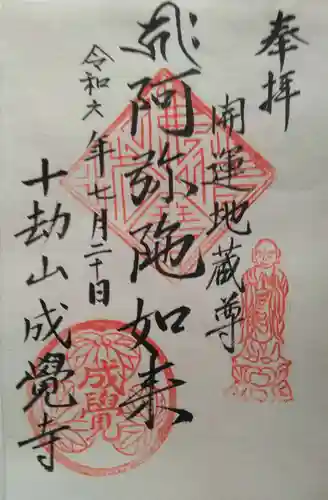 奉拝
開運地蔵尊
阿弥陁如来
令和六年七月二十日
十劫山成覺寺
成覺